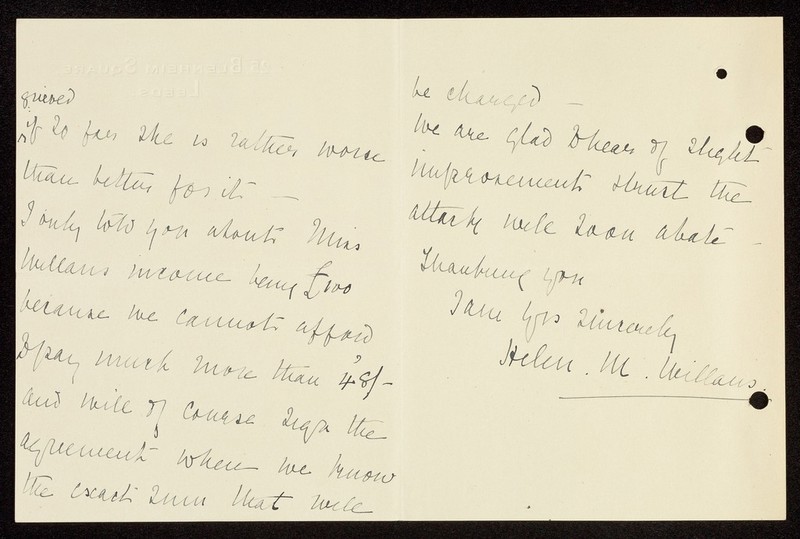 grieved
if so far she is rather worse
than better for it —
I only told you about Miss
Willans income being £100
because we cannot afford
to pay much more than 48/-
and will of course sign the
agreement when we know
the exact sum that will
be charged —
We are glad to hear of slight
improvement & trust the
attacks will soon abate —
Thanking you
I am Yrs Sincerely
Helen. M. Willans.
BLENHEIM SQUARE
LEEDS